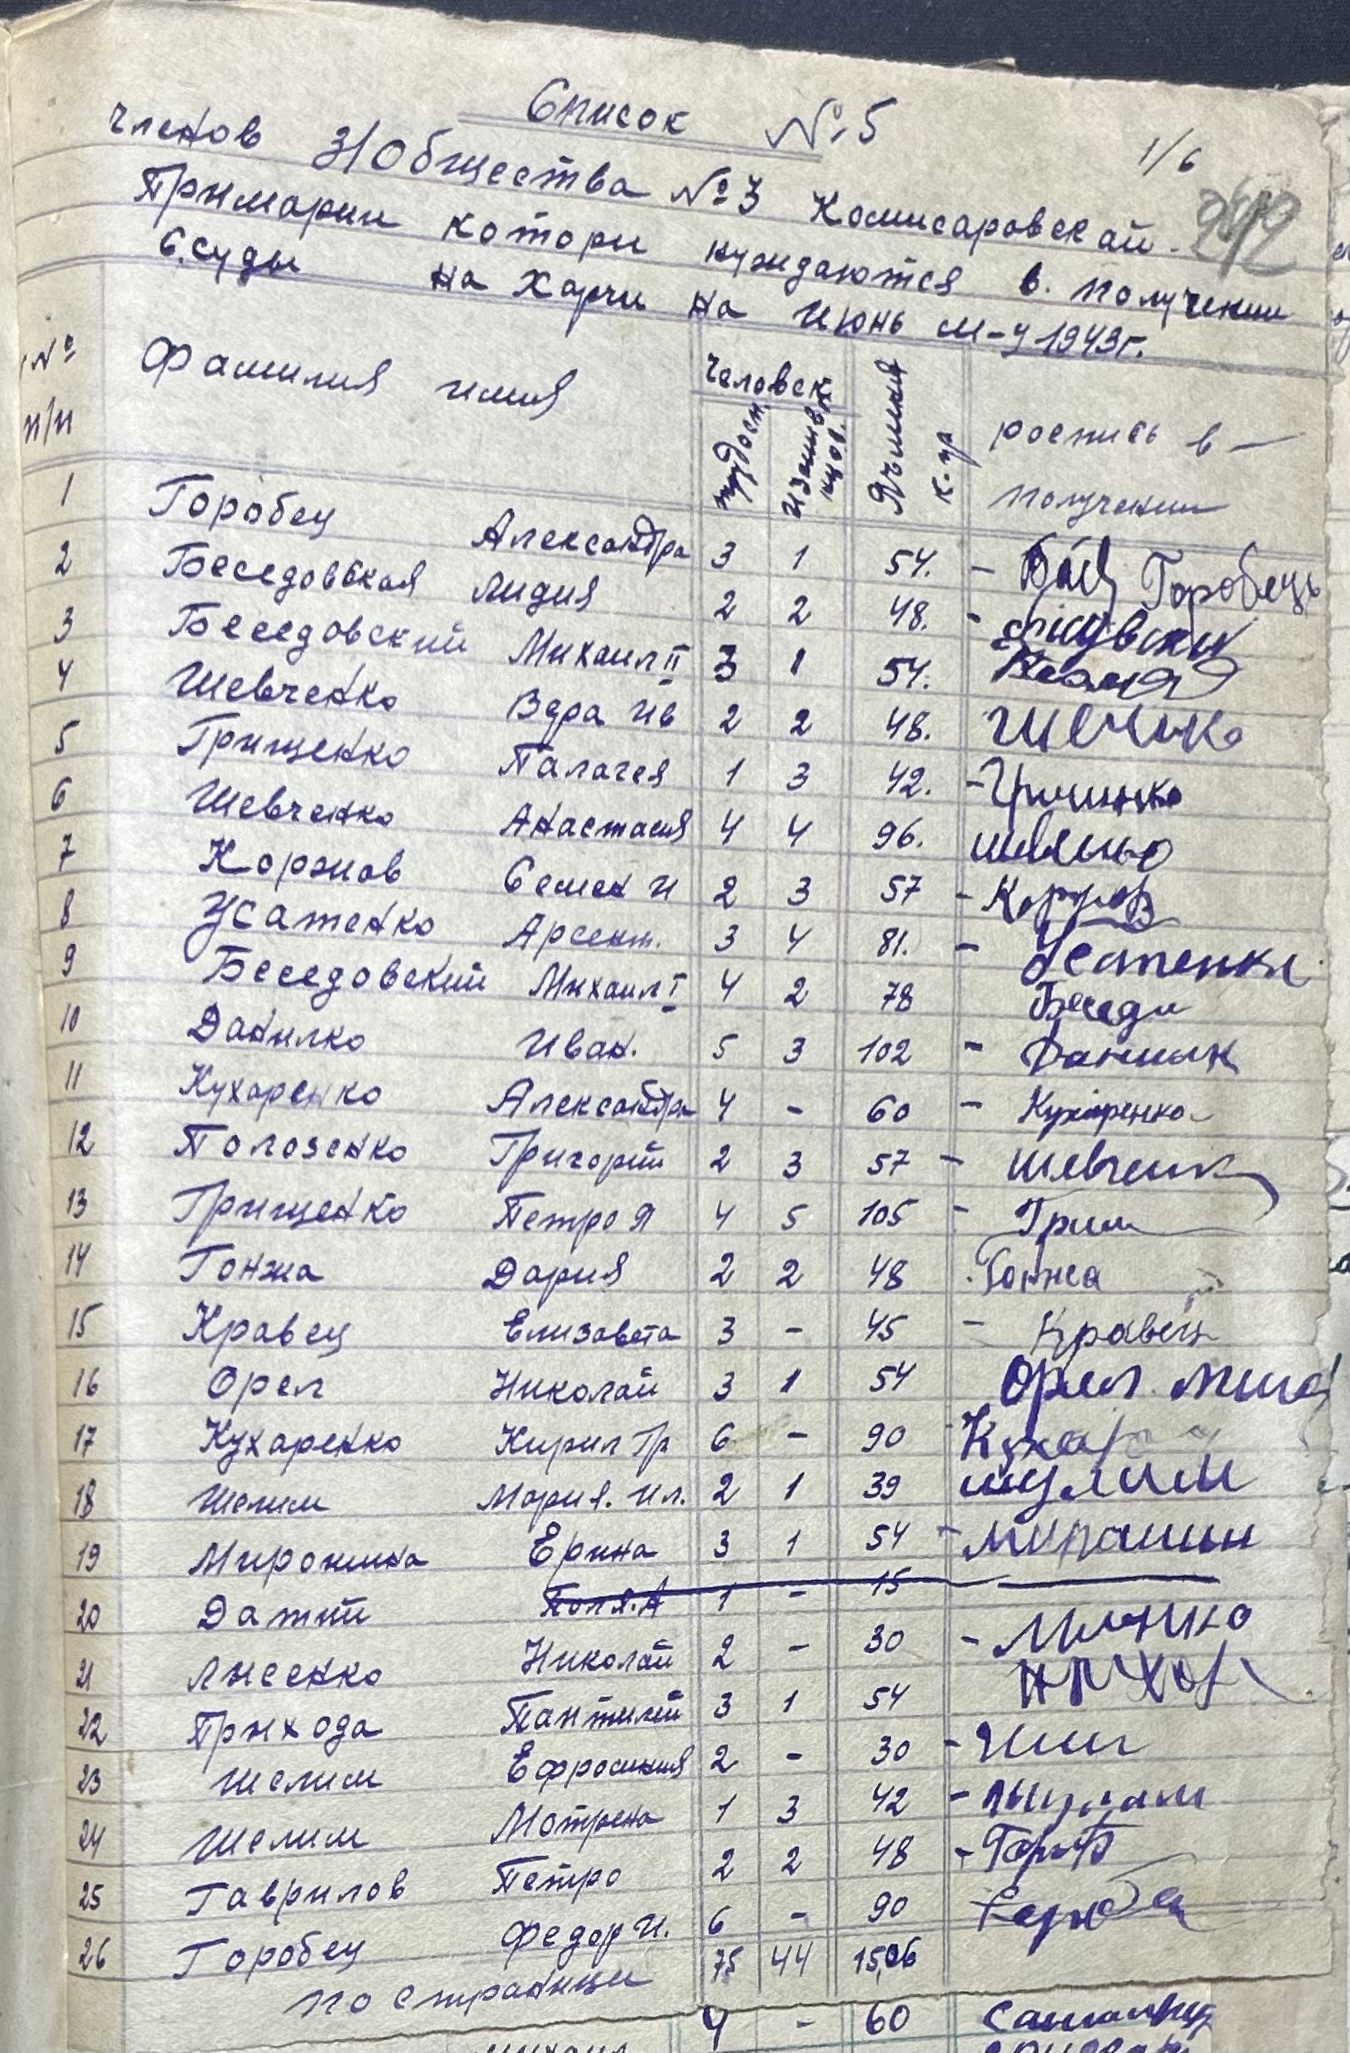 Список № 5
1/6
членов З/Общества № 3 Комисаровской
242
Примарии котори нуждаются в. получении
Ссуды на Харчи на Июнь м-ц 1943 г.
№ п/п Фамилия имия Человек трудосп. Иждивенцов. Ячменя к-гр роспись в получении
1 Горобец Александра 3 1 54. - Горобець
2 Беседовская Лидия 2 2 48. -
3 Беседовский Михаил II 3 1 54.
4 Шевченко Вера Ив 2 2 48.
5 Грищенко Палагея 1 3 42. -
6 Шевченко Анастасия 4 4 96.
7 Коржов Семен И 2 3 57 -
8 Усатенко Арсент. 3 4 81. - Усатенко
9 Беседовский Михаил I 4 2 78 Беседа
10 Данилко Иван. 5 3 102 -
11 Кухаренко Александра 4 - 60 - Кухаренко
12 Полозенко Григорий 2 3 57 - Шевченк
13 Грищенко Петро Я 4 5 105 - Грищ
14 Гонжа Дария 2 2 48 Гонжа
15 Кравец Елизавета 3 - 45 - Кравец
16 Орел Николай 3 1 54 Орел
17 Кухаренко Кирил Гр 6 - 90 Кухар
18 Шелим Мария. Ил. 2 1 39 шулим
19 Миронина Ерина 3 1 54 -
20 Датий Поля. А 1 - 15
21 Лисенко Николай 2 - 30 -
22 Прихода Пантилей 3 1 54 прихо
23 Шелим Ефросиния 2 - 30 -
24 Шелим Мотрена 1 3 42 -
25 Гаврилов Петро 2 2 48 -
26 Горобец Федор И. 6 - 90
по странице 75 44 1506
4 - 60